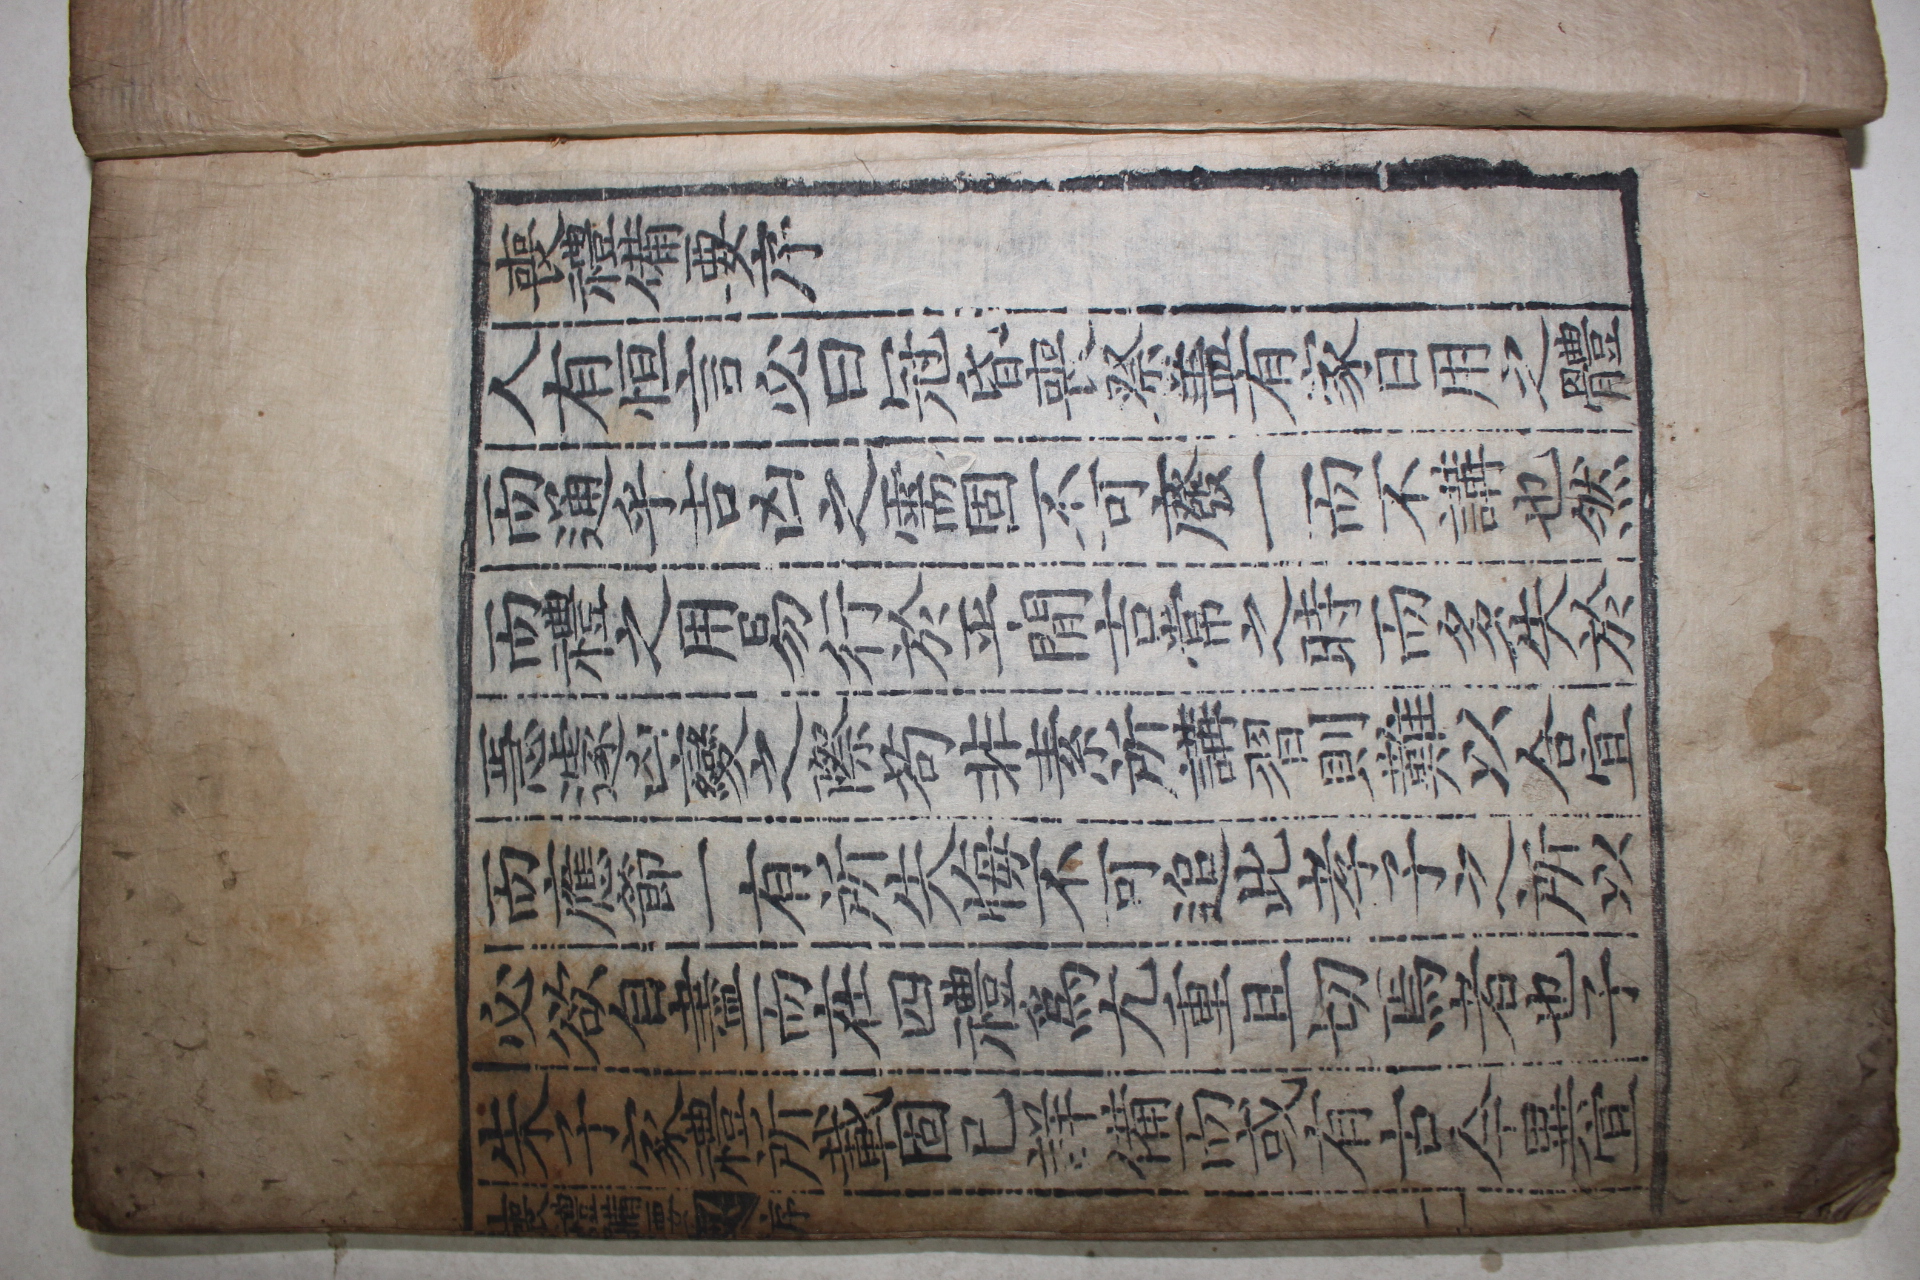 喪禮備要序
人有恒言必曰冠昏喪祭蓋有家日用之體
而通乎吉凶之需固不可廢一而不講也然
而禮之用易行於平閒吉常之時而多失於
急遽凶變之際苟非素所講習則難以合宜
而應節一有所失悔不可追此孝子之所以
必欲自盡而在四禮爲尤重且切焉者也子
朱子家禮所載固已詳備而或有古今異宜
喪禮備要 序 一